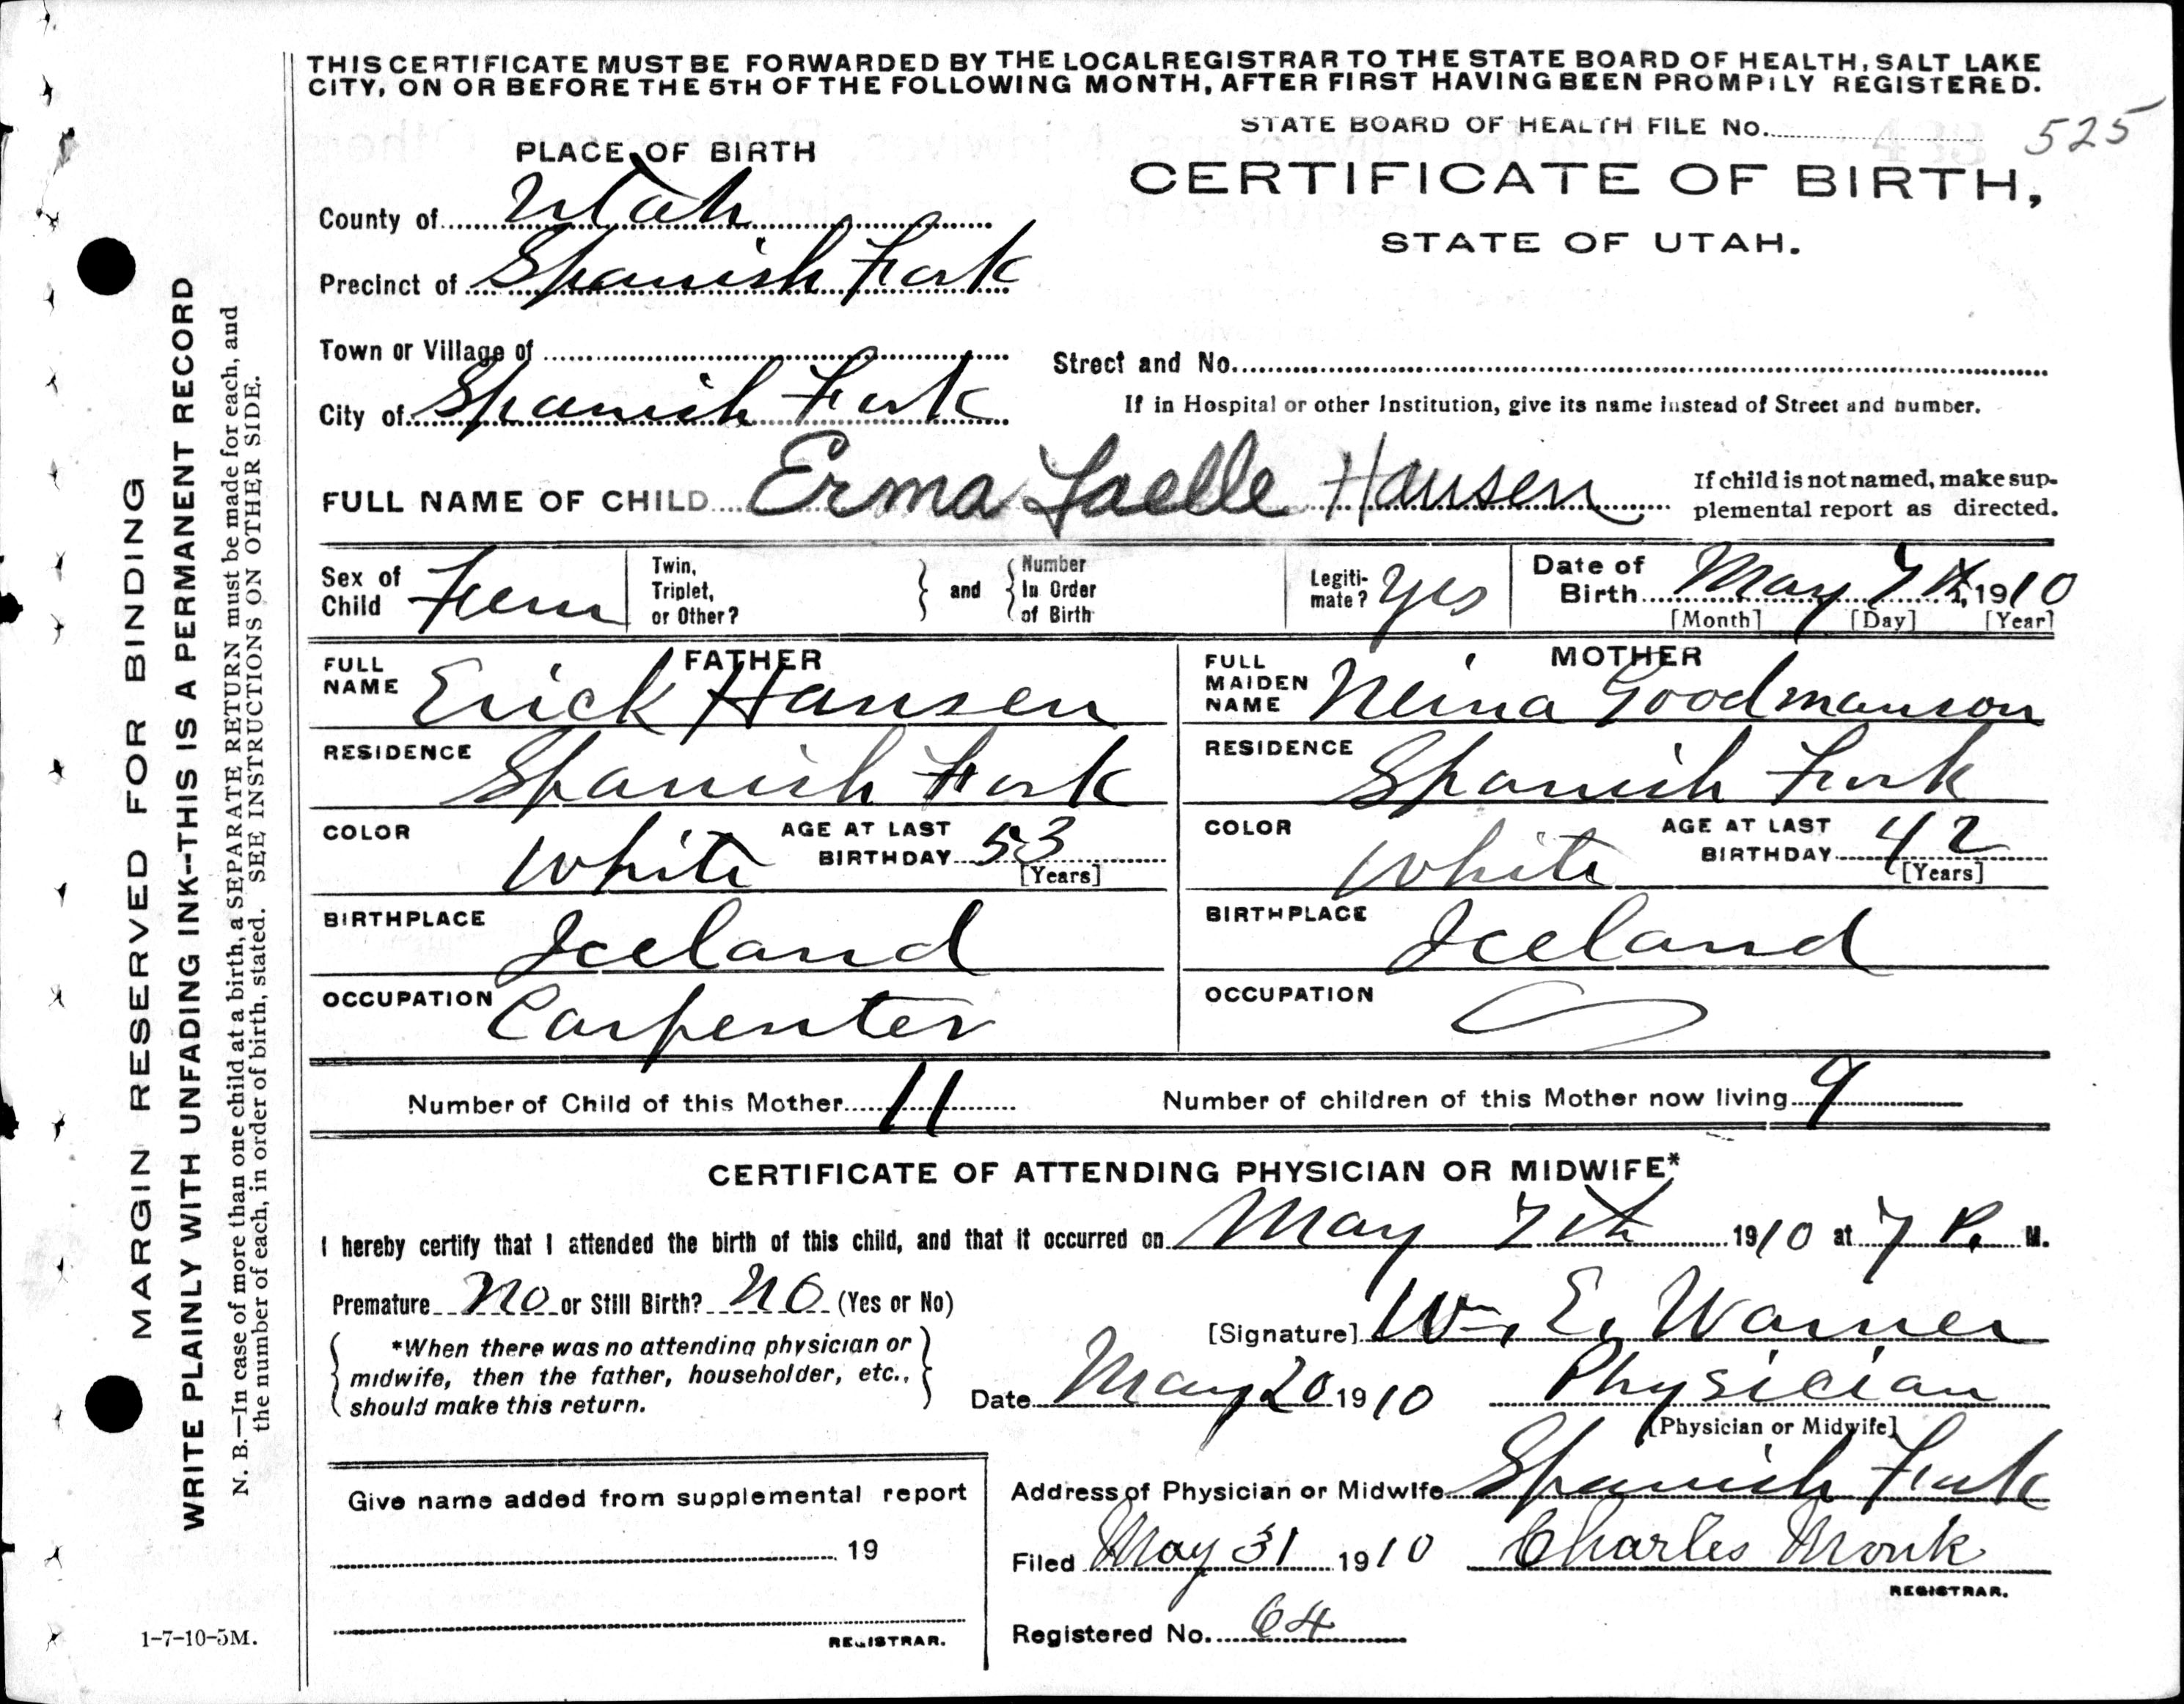 THIS CERTIFICATE MUST BE FORWARDED BY THE LOCAL REGISTRAR TO THE STATE BOARD OF HEALTH, SALT LAKE
CITY, ON OR BEFORE THE 5TH OF THE FOLLOWING MONTH, AFTER FIRST HAVING BEEN PROMPILY REGISTERED.
STATE BOARD OF HEALTH FILE No. 525
PLACE OF BIRTH
CERTIFICATE OF BIRTH,
STATE OF UTAH.
County of Utah
Precinct of Spanish Fork
Town or Village of
Street and No.
City of Spanish Fork
If in Hospital or other Institution, give its name instead of Street and number.
FULL NAME OF CHILD Erma Laelle Hansen
If child is not named, make sup-
plemental report as directed.
Sex of Child Fem
Twin, Triplet, or Other?
and
Number In Order of Birth
Legiti-mate? Yes
Date of Birth May 7th, 1910
[Month] [Day] [Year]
FATHER
FULL NAME Erick Hansen
RESIDENCE Spanish Fork
COLOR White
AGE AT LAST BIRTHDAY 53 [Years]
BIRTHPLACE Iceland
OCCUPATION Carpenter
MOTHER
FULL MAIDEN NAME Neina Goodmanson
RESIDENCE Spanish Fork
COLOR White
AGE AT LAST BIRTHDAY 42 [Years]
BIRTHPLACE Iceland
OCCUPATION
Number of Child of this Mother 11
Number of children of this Mother now living 9
CERTIFICATE OF ATTENDING PHYSICIAN OR MIDWIFE*
I hereby certify that I attended the birth of this child, and that it occurred on May 7th 1910 at 7 P. M.
Premature No or Still Birth? No (Yes or No)
*When there was no attending physician or
midwife, then the father, householder, etc.,
should make this return.
[Signature] Wm. E. Warner
Date May 20 1910 Physician
[Physician or Midwife]
Address of Physician or Midwife Spanish Fork
Filed May 31 1910 Charles Monk
REGISTRAR.
Registered No. 64
Give name added from supplemental report
19
REGISTRAR.
MARGIN RESERVED FOR BINDING
WRITE PLAINLY WITH UNFADING INK--THIS IS A PERMANENT RECORD
N. B.—In case of more than one child at a birth, a SEPARATE RETURN must be made for each, and
the number of each, in order of birth, stated. SEE INSTRUCTIONS ON OTHER SIDE.
1-7-10-5M.